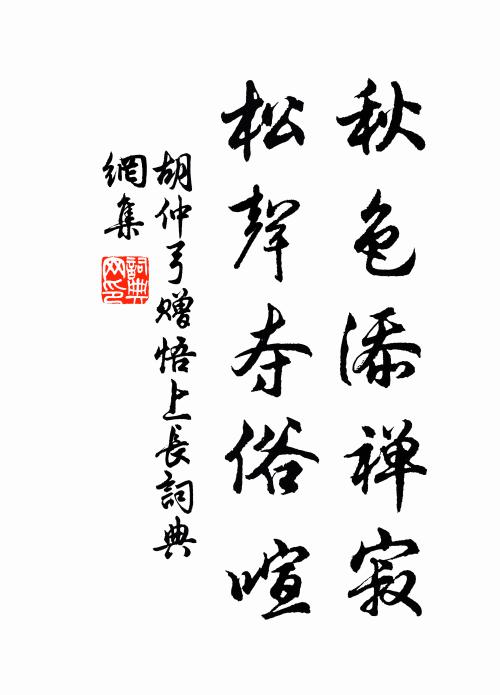 秋色添禅寂
松聲夺俗喧
胡仲弓赠悟上长詞典
網集
詞典網印